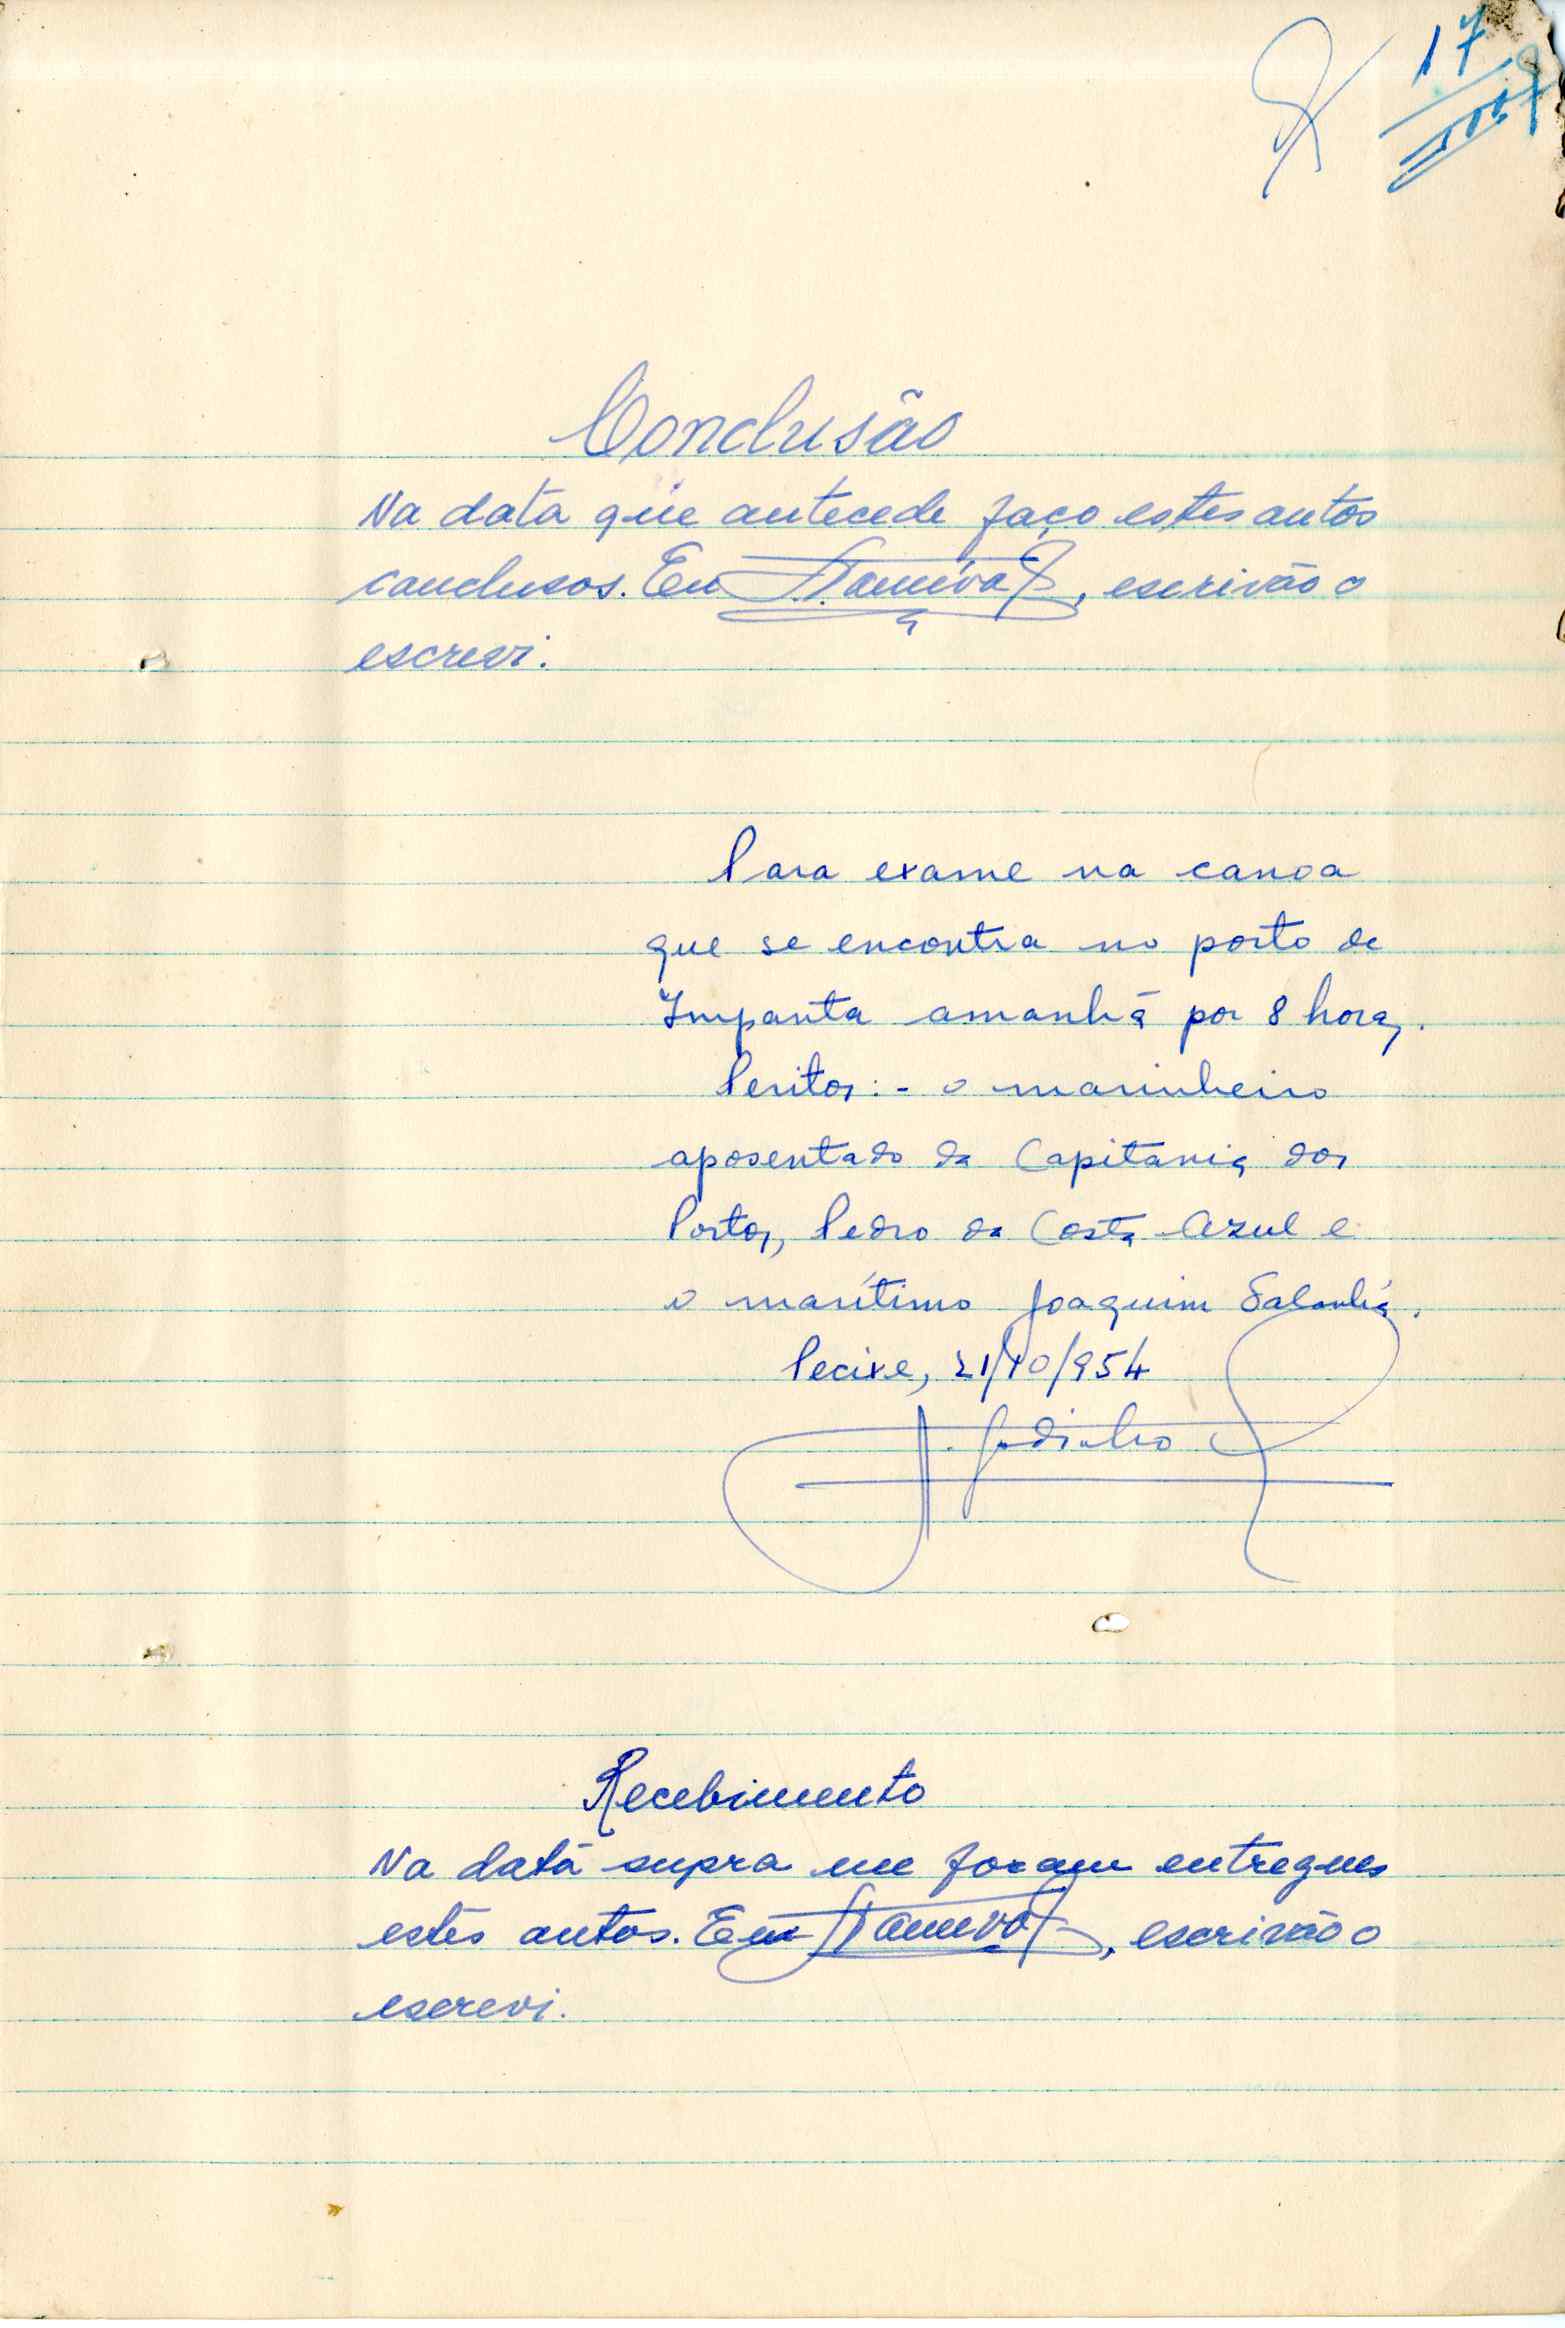 17
Conclusão
Na data que antecede faço estes autos
conclusos. Eu, escrivão o
escrevi.
Para exame na canoa
que se encontra no porto de
Impanta amanhã por 8 horas.
Peritos: - o marinheiro
aposentado da Capitania dos
Portos, Pedro da Costa Azul e
o marítimo Joaquim
Pecixe, 21/10/954
J. Godinho
Recebimento
Na data supra me foram entregues
estes autos. Eu, escrivão o
escrevi.